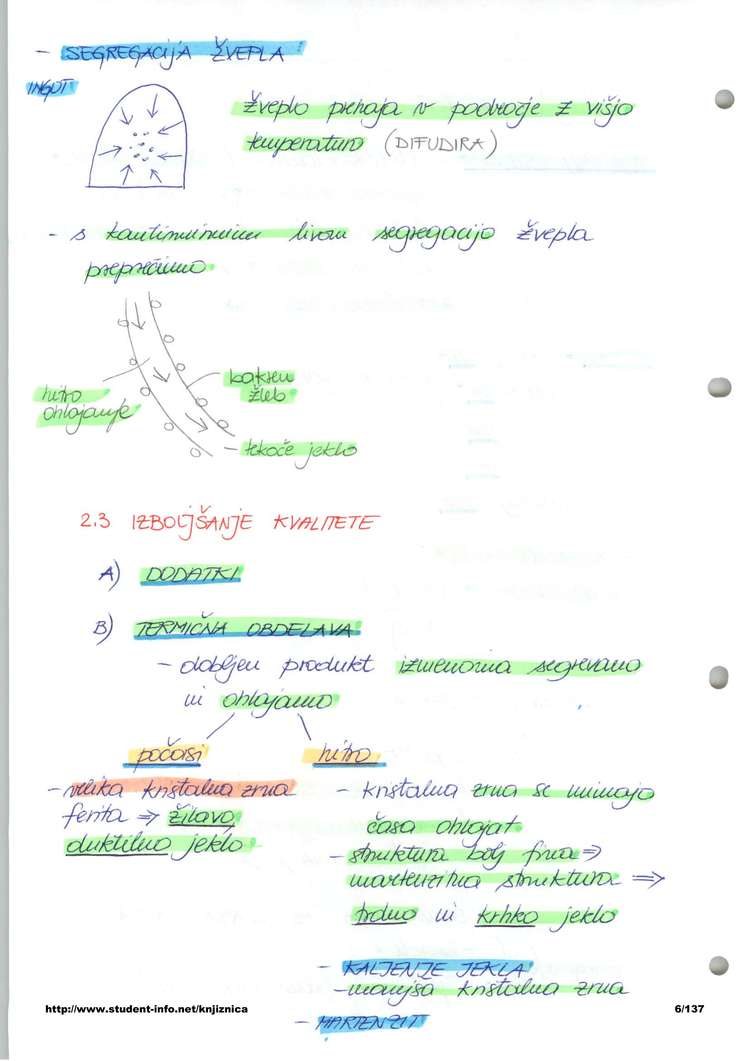 - SEGREGACIJA ŽVEPLA:
INGOT
žveplo prehaja v področje z višjo
temperaturo (DIFUDIRA)
- s kontinuirnim livom segregacijo žvepla
preprečimo.
hitro
ohlajanje
bakren
žleb
- tekoče jeklo
2.3 IZBOLJŠANJE KVALITETE
A) DODATKI
B) TERMIČNA OBDELAVA
- dobljen produkt izmenoma segrevamo
in ohlajamo
počasi
hitro
- velika kristalna zrna
ferita ⇒ žilavo,
duktilno jeklo
- kristalna zrna se nimajo
časa ohlajat
- struktura bolj fina ⇒
martenzitna struktura ⇒
trdno in krhko jeklo
- KALJENJE JEKLA
- manjša kristalna zrna
- MARTENZIT
http://www.student-info.net/knjiznica
6/137